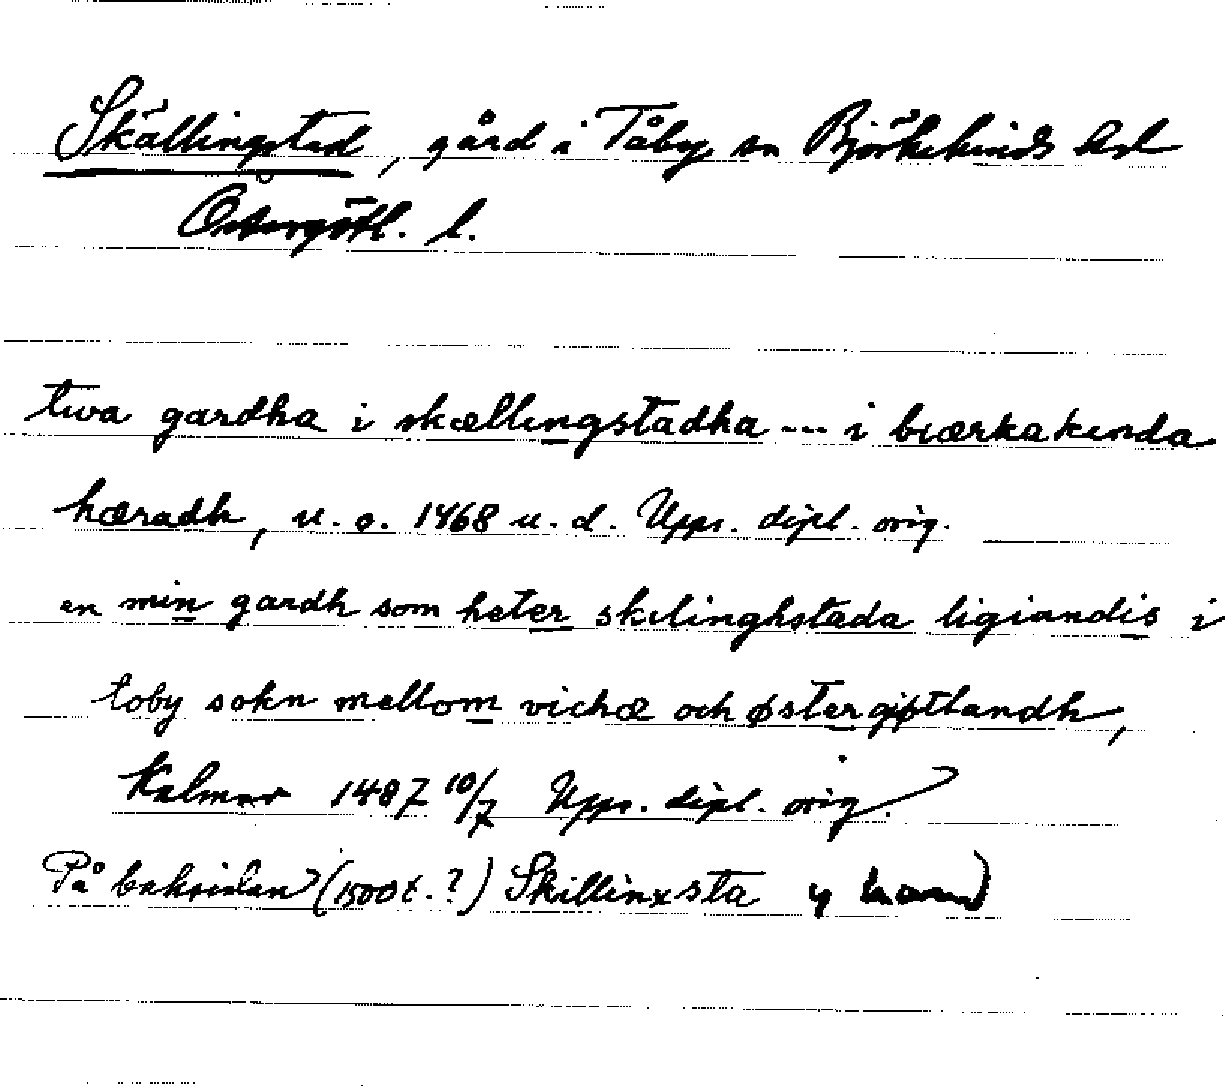 Skällingstad, gård i Tåby sn Björkekinds hd
Östergötl. l.
twa gardha i skællingstadha --- i biærkakinda
hæradh, u. o. 1468 u. d. Upps. dipl. orig.
en min gardh som heter skilinghstada ligiandis i
toby sokn mellom vichæ och østergøtlandh,
Kalmar 1487 10/7 Upps. dipl. orig.
På baksidan (1500 t. ?) Skillinxsta